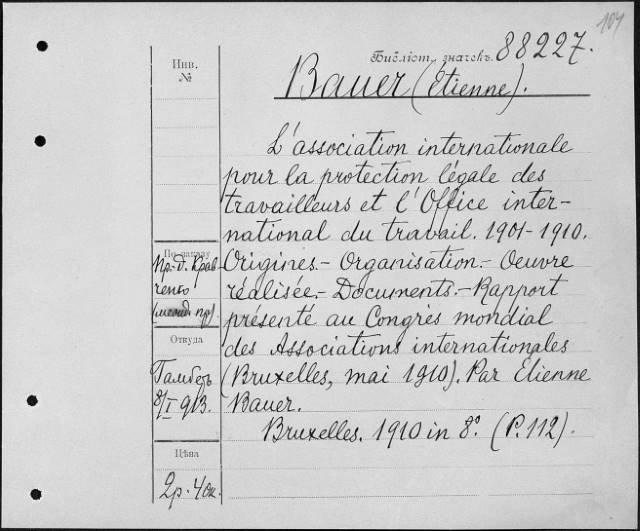 104
Библіот. значекъ. 88227.
Инв.
№
Bauer (Étienne).
L'association internationale
pour la protection légale des
travailleurs et l'Office inter-
national du travail. 1901-1910.
Origines.- Organisation.- Oeuvre
réalisée.- Documents.- Rapport
présenté au Congrès mondial
des Associations internationales
(Bruxelles, mai 1910). Par Etienne
Bauer.
Bruxelles. 1910 in 8.° (P. 112).
Пр.-д. Крав
ченко
Откуда
8/I 913.
Цѣна
2р. 40к.